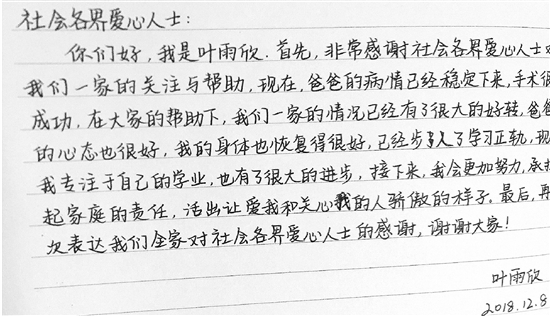 社会各界爱心人士：
你们好，我是叶雨欣．首先，非常感谢社会各界爱心人士对
我们一家的关注与帮助，现在，爸爸的病情已经稳定下来，手术很
成功，在大家的帮助下，我们一家的情况已经有了很大的好转，爸爸
的心态也很好，我的身体也恢复得很好，已经步入了学习正轨，现
我专注于自己的学业，也有了很大的进步，接下来，我会更加努力，承担
起家庭的责任，活出让爱我和关心我的人骄傲的样子．最后，再
次表达我们全家对社会各界爱心人士的感谢，谢谢大家！
叶雨欣
2018.12.8